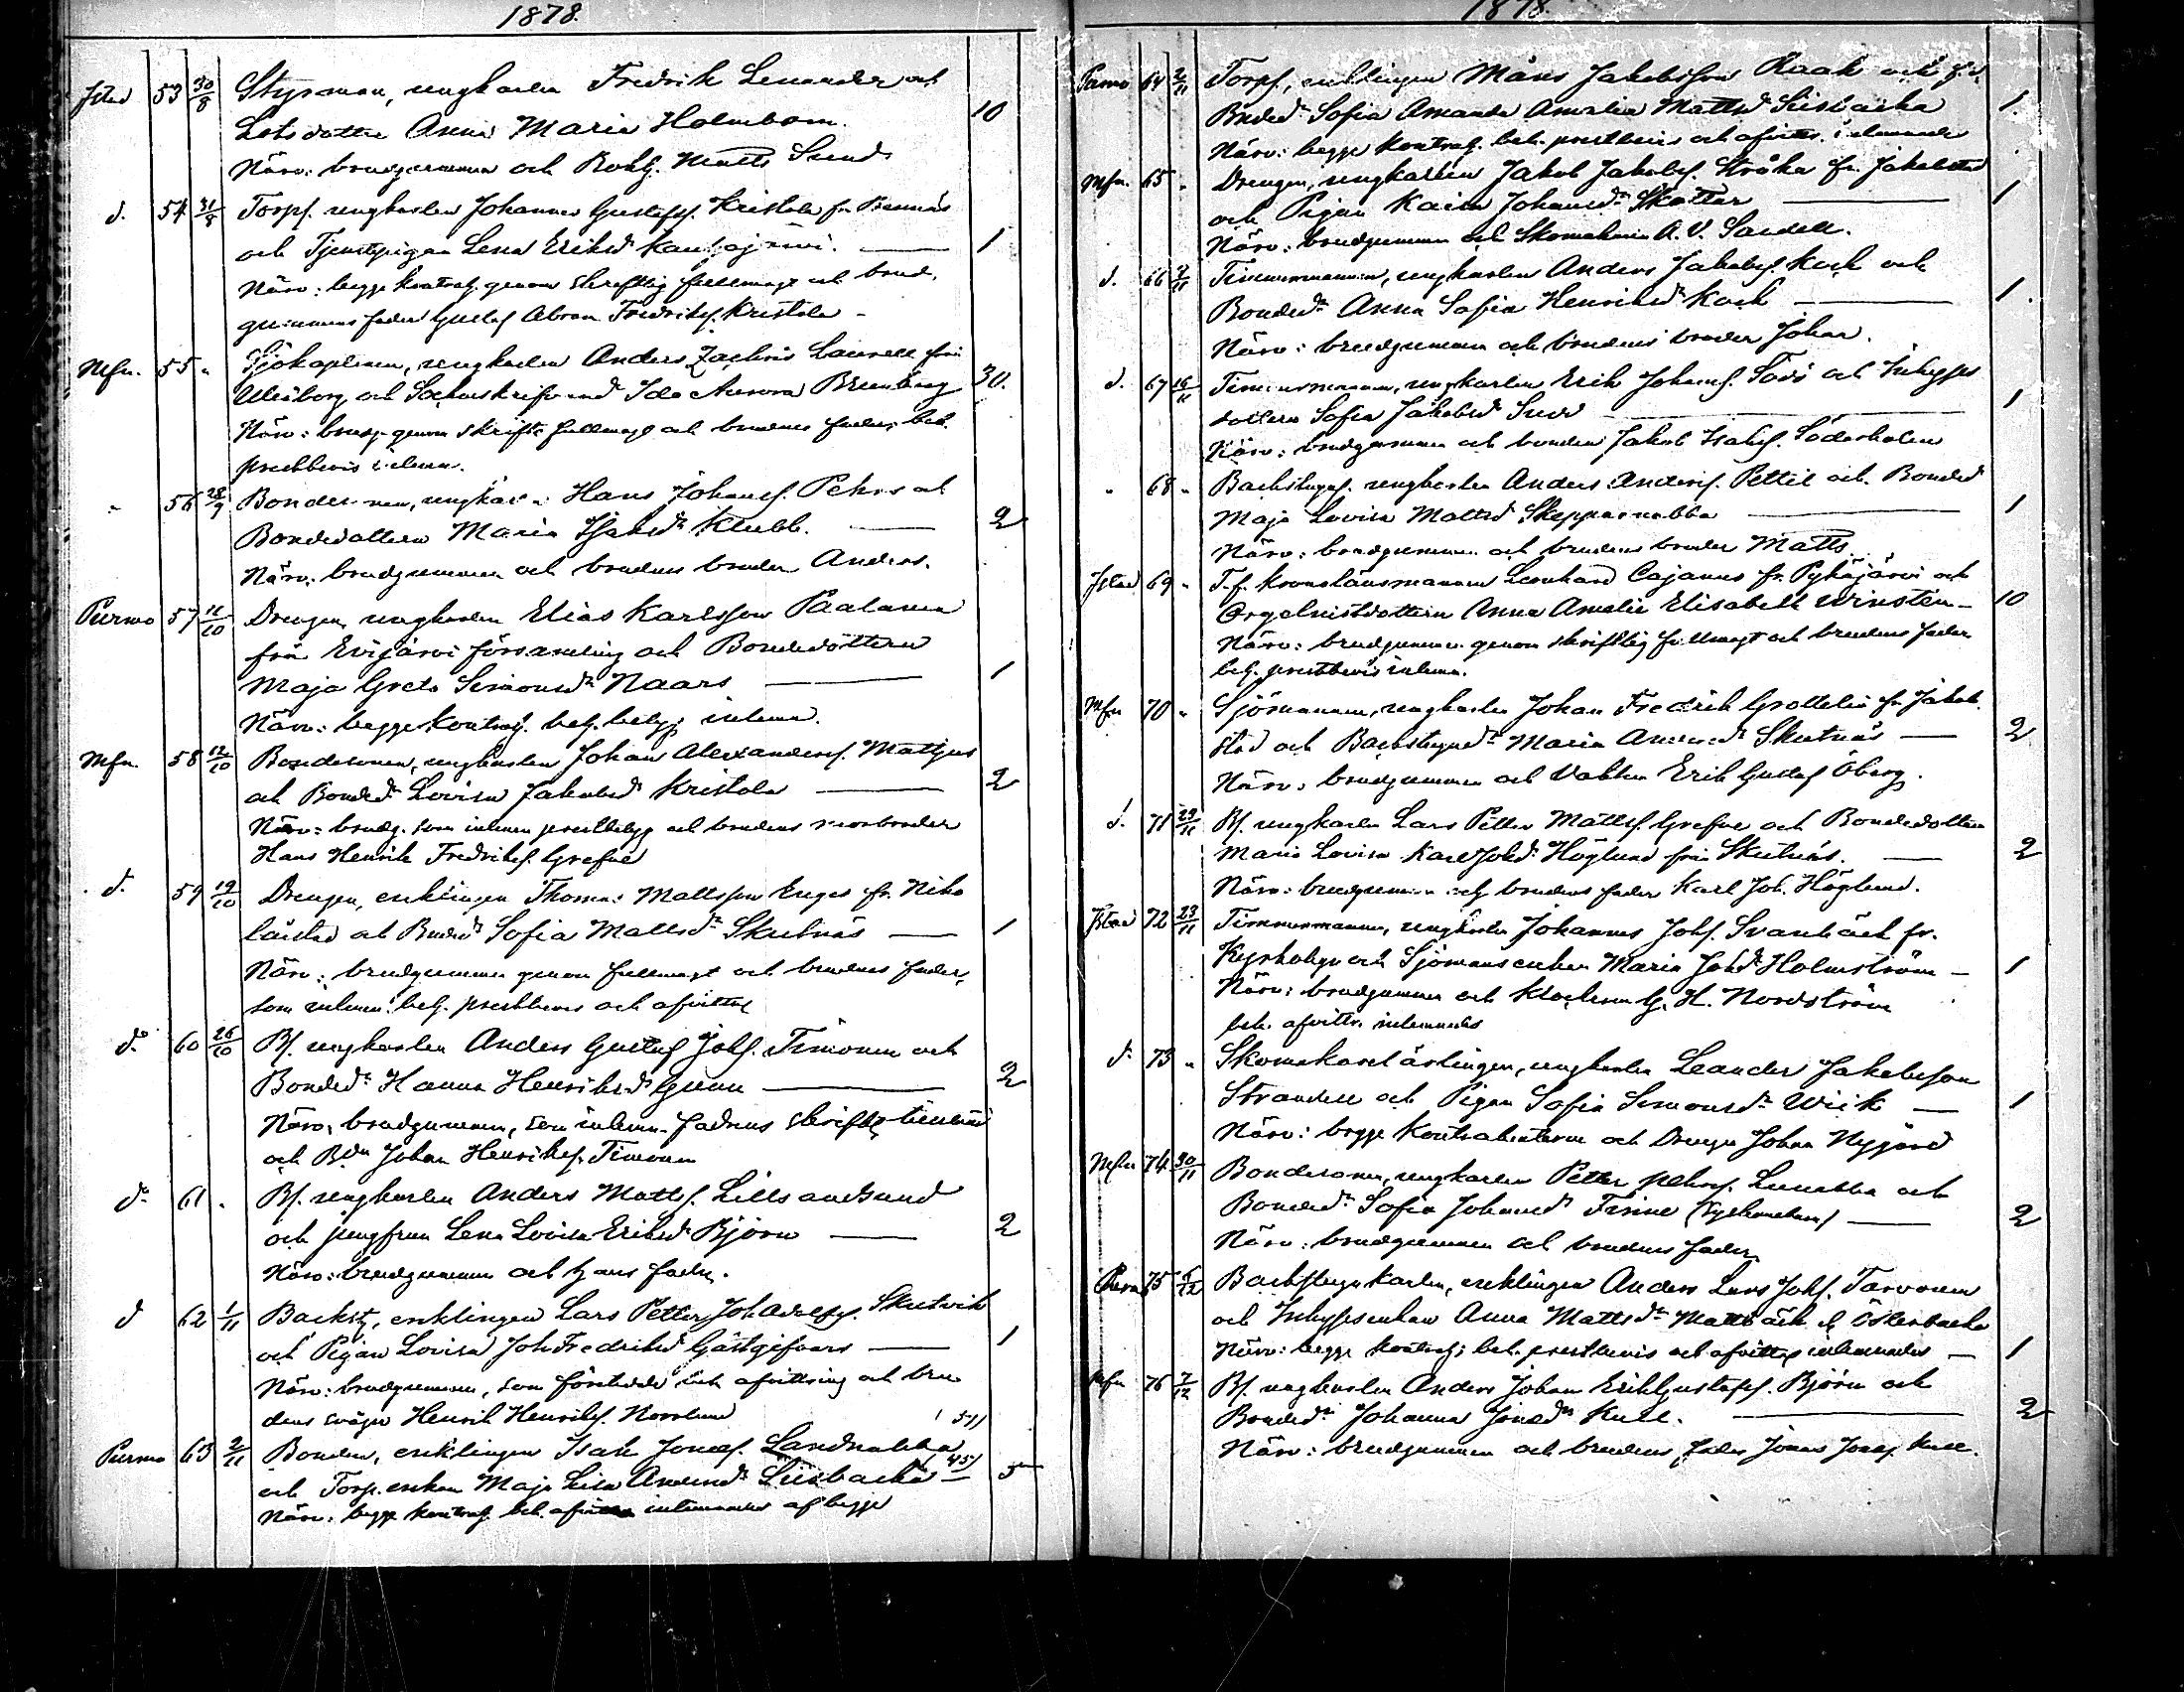 1878.
Jstad 53 30/8 Styrman, ungkarlen Fredrik Lenander och
Lotsdottern Anna Maria Holmbom. 10
Närv: brudgummen och Matts Sund
d. 54 31/8 Torpf. ungkarlen Johannes Gustafsf. Kristola fr.
och Tjenstpigan Lena Eriksd. 1
Närv: begge kontrah. genom skriftlig fullmagt och brud-
gummens fader Gustaf Abram Fredriksf. Kristola
Mfn. 55 " Sjökaptenen, ungkarlen Anders Zachris Laurell från
Uleåborg och Ida Aurora Brunberg 30.
Närv: brudg. genom skriftl. fullmagt och brudens fader, beh.
prestbevis inlemn.
" 56 28/9 Bondesonen, ungkarlen Hans Johansf. Pehrs och
Bondedottern Maria Klubb. 2
Närv: brudgummen och brudens broder Anders.
Purmo 57 11/10 Drengen, ungkarlen Elias Karlsson Paalanen
från Evijärvi församling och Bondedottern
Maja Greta Simonsdr Naars 1
Närv: begge kontrah. beh. betyg inlemn.
Mfn. 58 12/10 Bondesonen, ungkarlen Johan Alexandersf. Mattjus
och Bonded. Lovisa Jakobsd. Kristola 2
Närv: brudg. som inlemn. prestbetyg och brudens morbroder
Hans Henrik Fredriksf. Grefve
d. 59 19/10 Drengen, enklingen Thomas Mattsson Enges fr. Niko
laistad och Sofia Mattsdr Skutnäs 1
Närv: brudgummen genom fullmagt och brudens fader,
som inlemn. beh. prestbevis och afvittr.
do 60 26/10 Bf. ungkarlen Anders Gustaf Johf. Timonen och
Bonded. Hanna Henriksd. Gunn 2
Närv. brudgummen, som inlemn. fadrens skriftl.
och Johan Henriksf. Timonen
do 61 . Bf. ungkarlen Anders Mattsf. Lillsandsund
och jungfrun Lena Lovisa Eriksd. Björn 2
Närv: brudgummen och hans fader.
d 62 1/11 Backst. enklingen Lars Petter Joh. Adolfsf. Skutvik
och Pigan Lovisa Joh Fredriksd. Gästgifvars 1
Närv: brudgummen, som företedde beh. afvittring och bru-
dens svåger Henrik Henriksf. Norrlund
Purmo 63 2/11 Bonden, enklingen Isak Jonasf. Sandnabba
och Torp. enkan Maja Lisa Andersdr Liisbacka 5
Närv: begge kontrah. beh. inlemnades af begge
1878.
Purmo 64 2/11 Torpf, enklingen Måns Jakobsson Raak och
Sofia Amanda Amalia Mattsd Liisbacka 1.
Närv: begge kontrah. beh. prestbevis och afvittr. inlemnade
Mfn. 65 " Drengen, ungkarlen Jakob Jakobsf. Stråka fr. Jakobstad
och Pigan Kaisa Johansdr Skattar 1
Närv: brudgummen och Skomakaren A. V. Sandell.
d. 66 9/11 Timmermannen, ungkarlen Anders Jakobsf. Kock och
Bondedr Anna Sofia Henriksdr Kock 1.
Närv: brudgummen och brudens broder Johan.
d. 67 16/11 Timmermannen, ungkarlen Erik Johansf. Sodö och Inhyses
dottern Sofia Jakobsd Sund 1
Närv: brudgummen och bonden Jakob Isaksf. Söderholm
" 68 " Backstuguf. ungkarlen Anders Andersf. Pettil och Bonded
Maja Lovisa Mattsd Skepparnabba 1
Närv: brudgummen och brudens broder Matts
Jstad 69 " T.f. kronolänsmannen Leonhard Cajanus fr. Pyhäjärvi och
Orgelnistdottern Anna Amalia Elisabeth Winstén 10
Närv: brudgummen genom skriftlig fullmagt och brudens fader
beh. prestbevis inlemn.
Mfn 70 " Sjömannen, ungkarlen Johan Fredrik Grottelin fr. Jakob-
stad och Backstugudr Maria Andersdr Skutnäs 2
Närv: brudgummen och Vakten Erik Gustaf Öberg.
d. 71 23/11 Bf. ungkarlen Lars Petter Mattsf. Grefve och Bondedottern
Maria Lovisa Karl Johdr Höglund från Skutnäs. 2
Närv: brudgummen och brudens fader Karl Joh. Höglund.
Jstad 72 23/11 Timmermannen, ungkarlen Johannes Johf. Svanbäck fr.
och Sjömansenkan Maria Johdr Holmström 1
Närv: brudgummen och Klockaren G. H. Nordström
beh. afvittr. inlemnades
do 73 " Skomakarelärlingen, ungkarlen Leander Jakobsson
Strandell och Pigan Sofia Simonsdr Wiik 1
Närv: begge kontrahenterne och Drengen Johan Nygård
Mfn 74 30/11 Bondesonen, ungkarlen Petter Pehrsf. Lunabba och
Bondedr Sofia Johansdr Finne 2
Närv: brudgummen och brudens fader
Purmo 75 5/12 Backstugukarlen, enklingen Anders Lars Johf. Tarvonen
och Inhysesenkan Anna Mattsdr Mattbäck el. Österbacka
Närv: begge kontrah; beh. prestbevis och afvittr. inlemnades 1
Mfn 76 7/12 Bf. ungkarlen Anders Johan Erik Gustafsf. Björn och
Bondedr Johanna Jonasdr Kull. 2
Närv: brudgummen och brudens fader Jonas Jonasf. Kull.